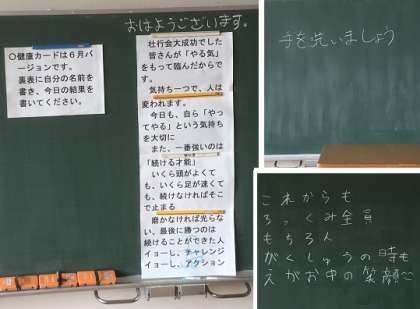 おはようございます。
○健康カードは６月バ
ージョンです。
裏表に自分の名前を
書き、今日の結果を
書いてください。
壮行会大成功でした
皆さんが「やる気」
をもって臨んだからで
す。
気持ち一つで、人は
変われます。
今日も、自ら「やっ
てやる」という気持ち
を大切に
また、一番強いのは
「続ける才能」
いくら頭がよくて
も、いくら足が速くて
も、続けなければそこ
で止まる
磨かなければ光らな
い、最後に勝つのは
続けることができた人
イョーし、チャレンジ
イョーし、アクション
手を洗いましょう
これからも
ろっくみ全員
もちろん
がくしゅうの時も
えがお中の笑顔〜